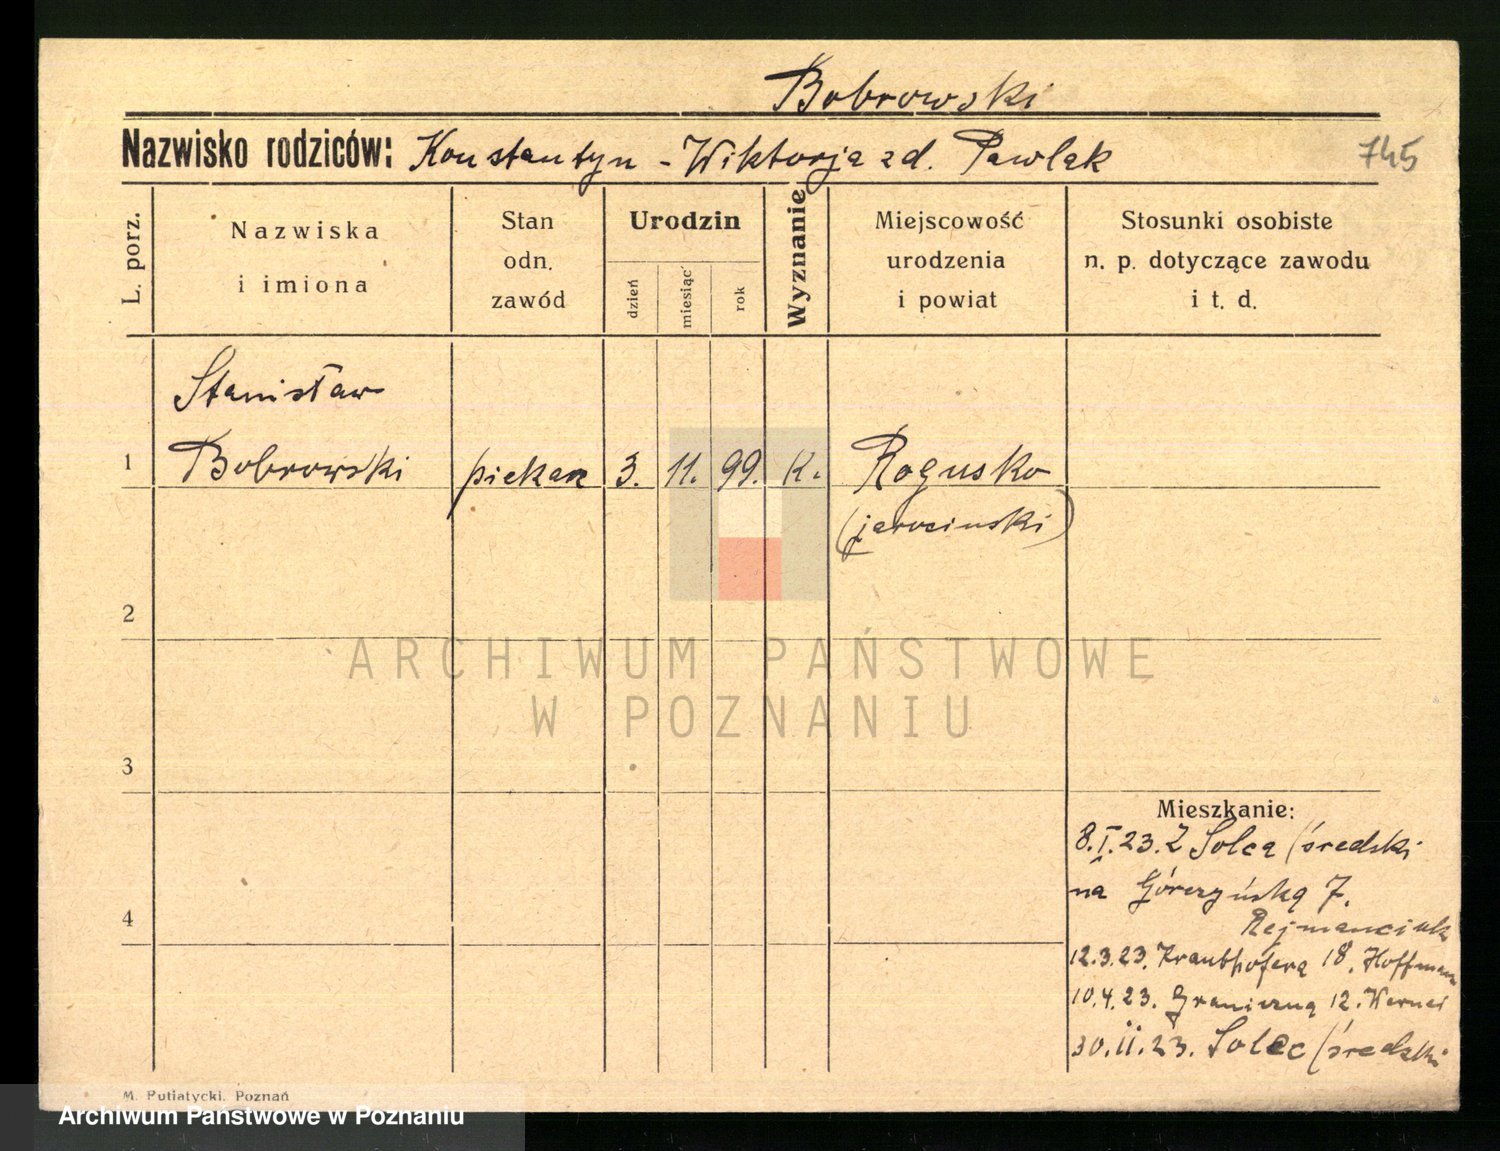 Bobrowski
Nazwisko rodziców: Konstantyn - Wiktorja zd. Pawlak 745
L. porz.
Nazwiska
i imiona
Stan
odn.
zawód
Urodzin
dzień
miesiąc
rok
Wyznanie
Miejscowość
urodzenia
i powiat
Stosunki osobiste
n. p. dotyczące zawodu
i t. d.
Stanisław
1 Bobrowski piekarz 3. 11. 99. K. Rogusko
(jarocinski)
2
3
4
Mieszkanie:
8.I.23. Z Solca (średski
na Górczyńską 7.
Rejmanciak
12.3.23. 18. Hoffmann
10.4.23. Graniczną 12. Werner
30.II.23. Solec (średzki
ARCHIWUM PAŃSTWOWE
W POZNANIU
M. Putiatycki, Poznań
Archiwum Państwowe w Poznaniu